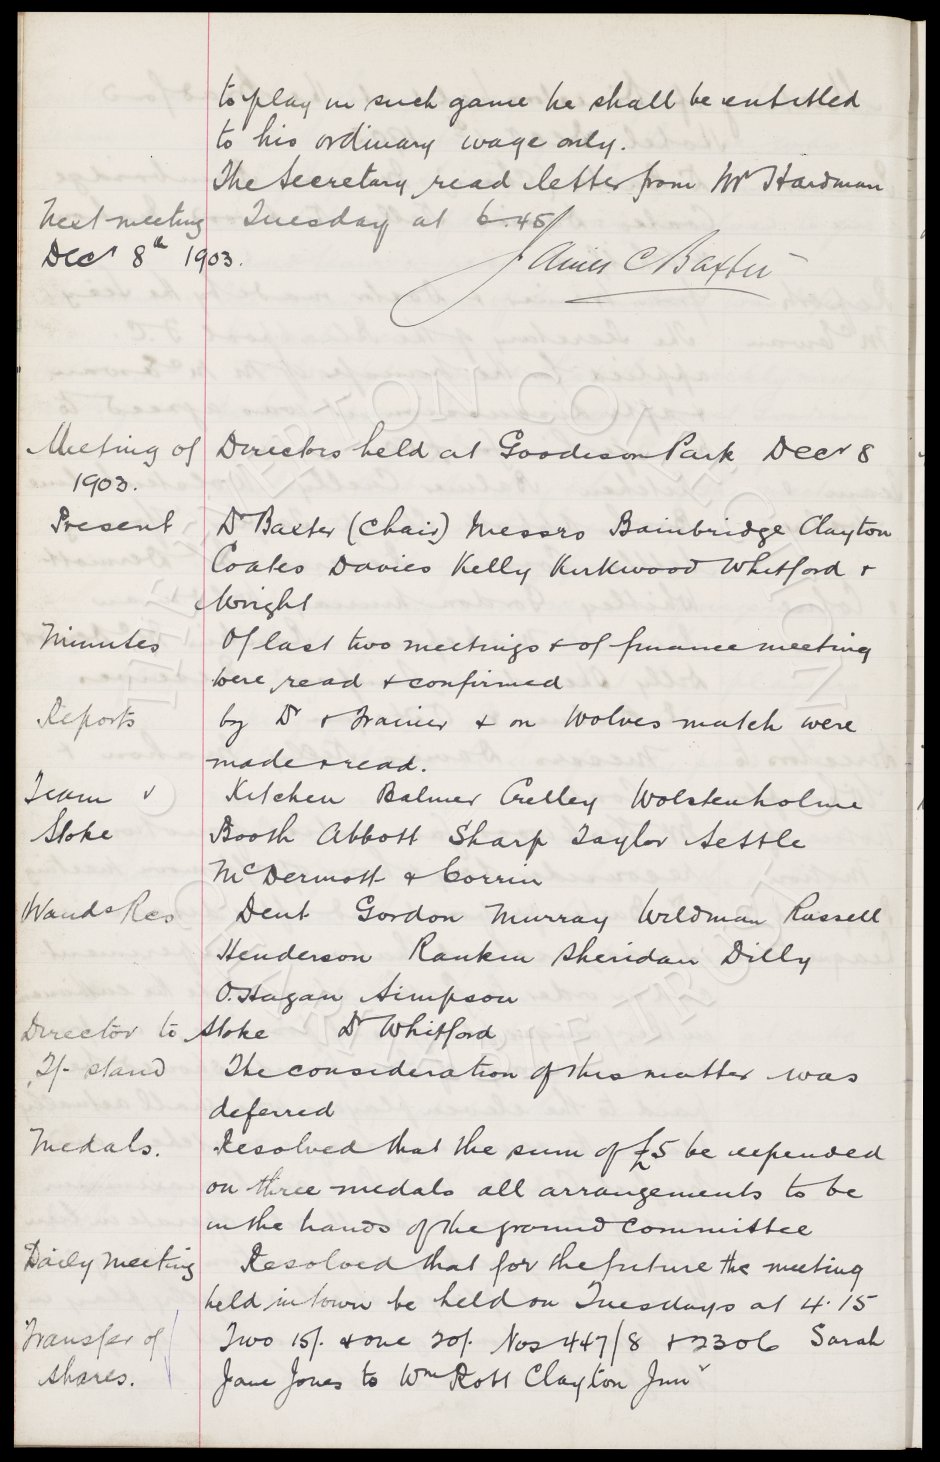 to play in such game he shall be entitled
to his ordinary wage only.
The Secretary read letter from Mr Hardman
Next meeting Tuesday at 6.45
Decr 8th 1903.
James C Baxter
Meeting of Directors held at Goodison Park Decr 8
1903.
Present Dr Baxter (Chair) Messrs Bainbridge Clayton
Coates Davies Kelly Kirkwood Whitford &
Wright
Minutes Of last two meetings & of finance meeting
were read & confirmed
Reports by Dr & Trainer & on Wolves match were
made & read.
Team v Kitchen Balmer Crelley Wolstenholme
Stoke Booth Abbott Sharp Taylor Settle
McDermott & Corrin
Wands Res Dent Gordon Murray Wildman Russell
Henderson Rankin Sheridan Dilly
O.Hagan Simpson
Director to Stoke Dr Whitford
2/- stand The consideration of this matter was
deferred
Medals. Resolved that the sum of £5 be expended
on three medals all arrangements to be
in the hands of the ground committee
Daily meeting Resolved that for the future the meeting
held in town be held on Tuesdays at 4.15
Transfer of Two 15/. & one 20/. Nos 447/8 & 2306 Sarah
shares. Jane Jones to Wm Robt Clayton Junr